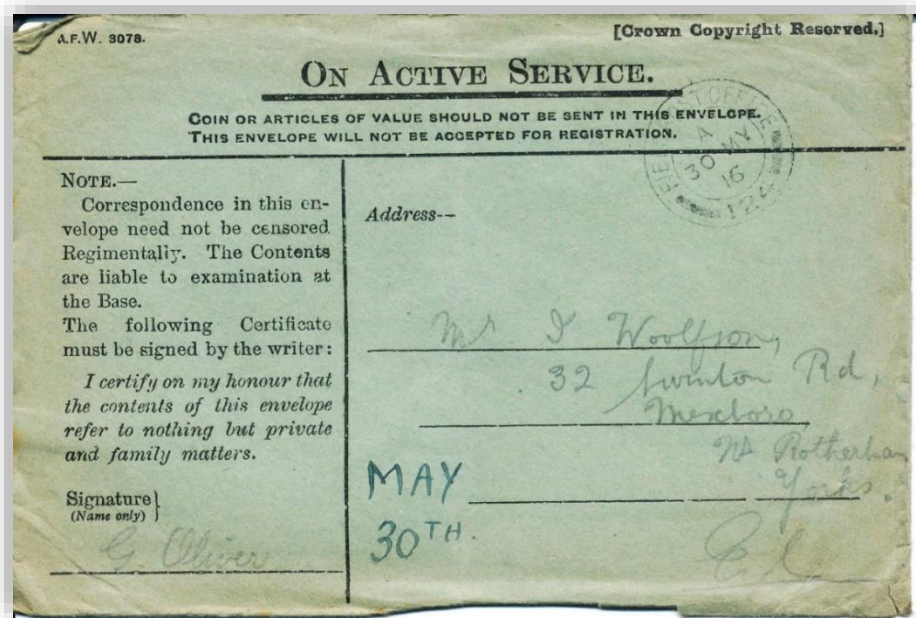 A.F.W. 3078.
[Crown Copyright Reserved.]
ON ACTIVE SERVICE.
COIN OR ARTICLES OF VALUE SHOULD NOT BE SENT IN THIS ENVELOPE.
THIS ENVELOPE WILL NOT BE ACCEPTED FOR REGISTRATION.
FIELD POST OFFICE
A
30 MY
16
124
NOTE.—
Correspondence in this en-
velope need not be censored
Regimentally. The Contents
are liable to examination at
the Base.
The following Certificate
must be signed by the writer:
I certify on my honour that
the contents of this envelope
refer to nothing but private
and family matters.
Signature}
(Name only)
G. Oliver
Address--
Mr I Woolfson,
32 Swinton Rd,
Mexboro,
Nr Rotherham
Yorks.
MAY
30TH.